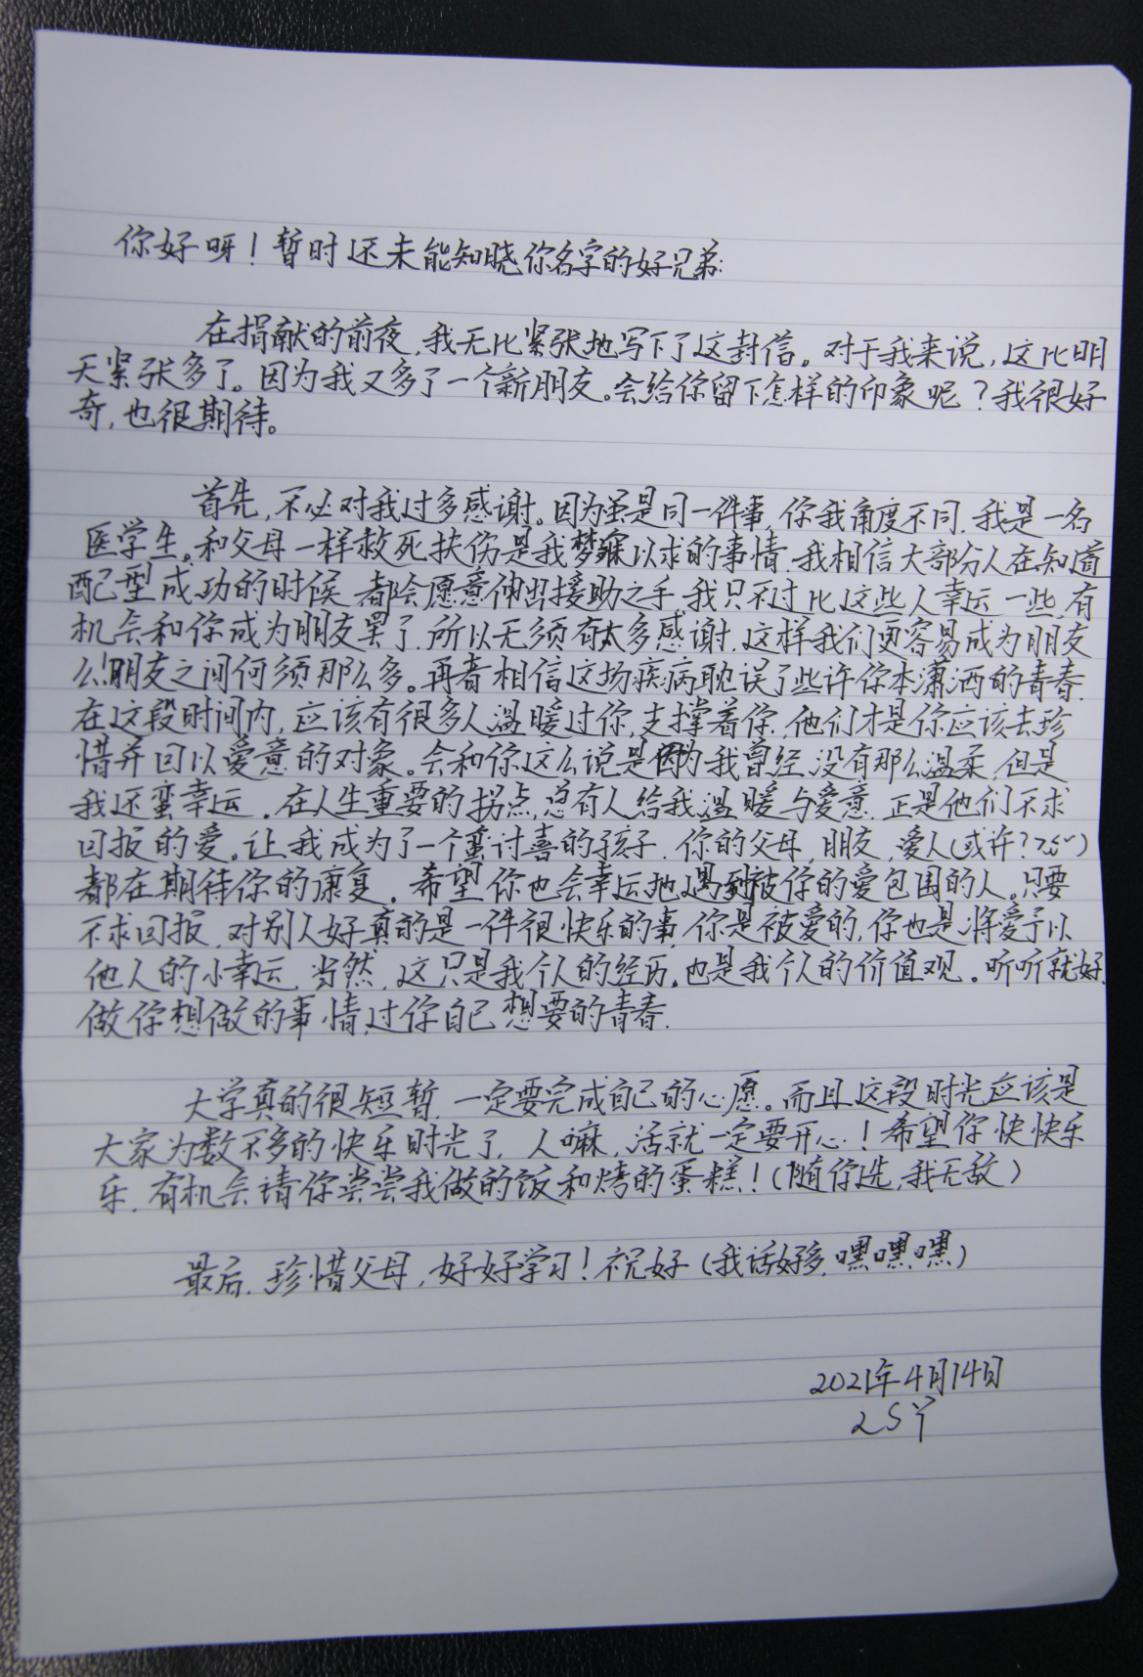 你好呀！暂时还未能知晓你名字的好兄弟:
在捐献的前夜,我无比紧张地写下了这封信。对于我来说,这比明
天紧张多了。因为我又多了一个新朋友。会给你留下怎样的印象呢？我很好
奇,也很期待。
首先,不必对我过多感谢。因为虽是同一件事,你我角度不同.我是一名
医学生。和父母一样救死扶伤是我梦寐以求的事情.我相信大部分人在知道
配型成功的时候 都会愿意伸出援助之手.我只不过比这些人幸运一些,有
机会和你成为朋友罢了.所以无须有太多感谢.这样我们更容易成为朋友
么!朋友之间何须那么多。再者相信这场疾病耽误了些许你本潇洒的青春.
在这段时间内,应该有很多人温暖过你,支撑着你.他们才是你应该去珍
惜并回以爱意的对象。会和你这么说是因为我曾经没有那么温柔,但是
我还蛮幸运.在人生重要的拐点,总有人给我温暖与爱意.正是他们不求
回报的爱。让我成为了一个蛮讨喜的孩子.你的父母,朋友,爱人(或许?)
都在期待你的康复.希望你也会幸运地遇到被你的爱包围的人.只要
不求回报,对别人好真的是一件很快乐的事.你是被爱的,你也是将爱予以
他人的小幸运.当然,这只是我个人的经历,也是我个人的价值观。听听就好.
做你想做的事情,过你自己想要的青春.
大学真的很短暂,一定要完成自己的心愿。而且这段时光应该是
大家为数不多的快乐时光了,人嘛,活就一定要开心！希望你快快乐
乐.有机会请你尝尝我做的饭和烤的蛋糕！(随你选,我无敌)
最后,珍惜父母,好好学习！祝好(我话好多,嘿嘿嘿)
2021年4月14日
LS丫